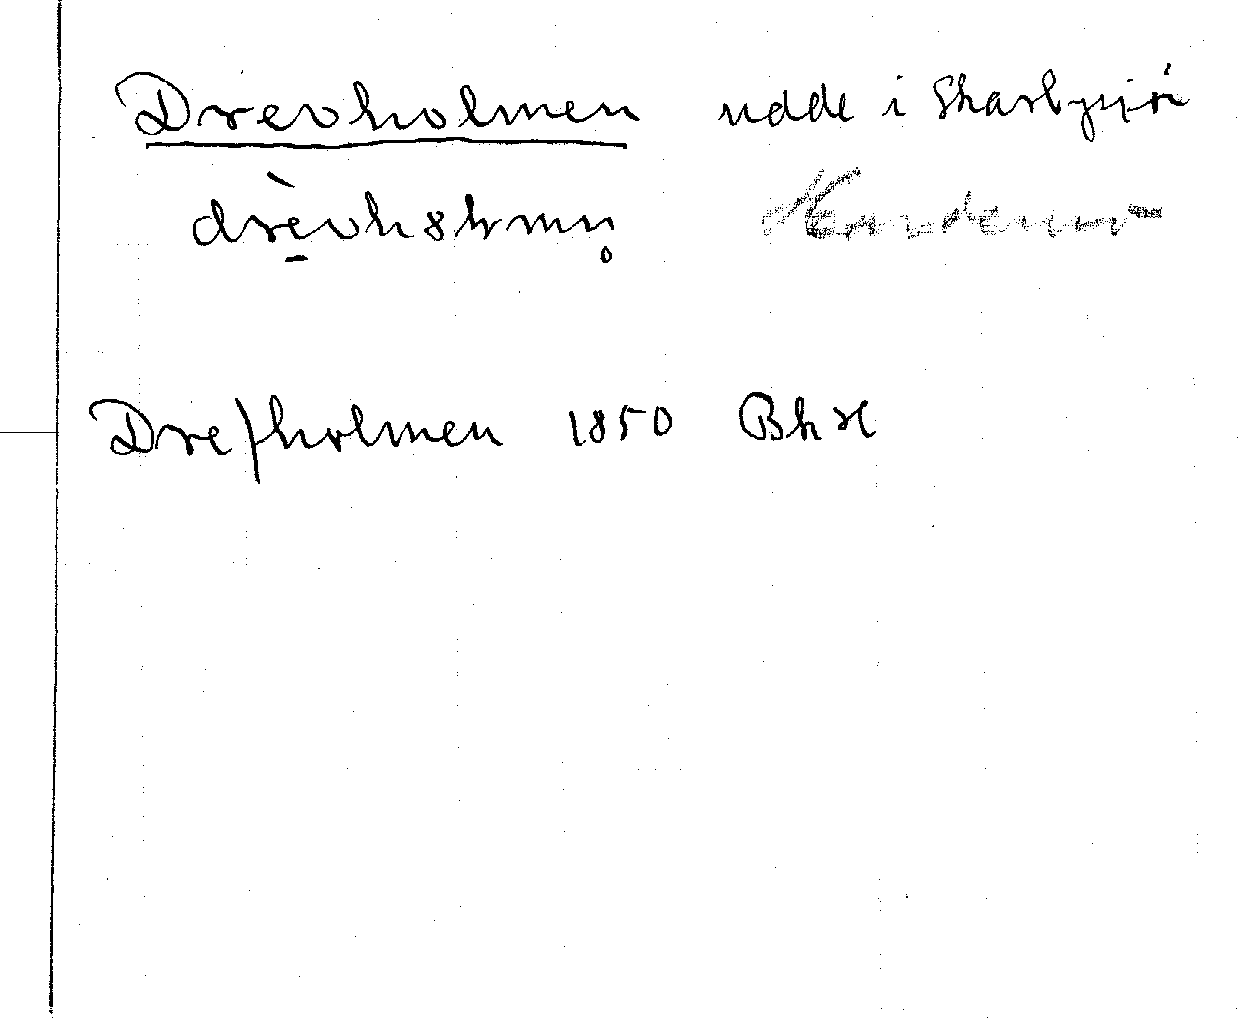 Drevholmen udde i Skarbysjön
drèvh8lmn̥
Drefholmen 1850 BhK